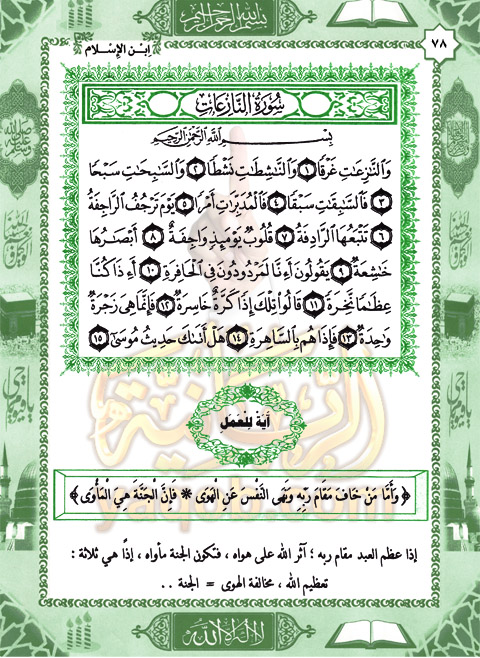 بسم الله الرحمن الرحيم
٧٨
ابن الإسلام
سُورَةُ النَّازِعَاتِ
بِسْمِ اللَّهِ الرَّحْمَٰنِ الرَّحِيمِ
وَالنَّٰزِعَٰتِ غَرْقًا ١ وَالنَّٰشِطَٰتِ نَشْطًا ٢ وَالسَّٰبِحَٰتِ سَبْحًا
٣ فَالسَّٰبِقَٰتِ سَبْقًا ٤ فَالْمُدَبِّرَٰتِ أَمْرًا ٥ يَوْمَ تَرْجُفُ الرَّاجِفَةُ
٦ تَتْبَعُهَا الرَّادِفَةُ ٧ قُلُوبٌ يَوْمَئِذٍ وَاجِفَةٌ ٨ أَبْصَٰرُهَا
خَٰشِعَةٌ ٩ يَقُولُونَ أَءِنَّا لَمَرْدُودُونَ فِي الْحَافِرَةِ ١٠ أَءِذَا كُنَّا
عِظَٰمًا نَّخِرَةً ١١ قَالُوا تِلْكَ إِذًا كَرَّةٌ خَاسِرَةٌ ١٢ فَإِنَّمَا هِيَ زَجْرَةٌ
وَٰحِدَةٌ ١٣ فَإِذَا هُم بِالسَّاهِرَةِ ١٤ هَلْ أَتَىٰكَ حَدِيثُ مُوسَىٰ ١٥
آيَةٌ لِلْعَمَلِ
﴿ وَأَمَّا مَنْ خَافَ مَقَامَ رَبِّهِ وَنَهَى النَّفْسَ عَنِ الْهَوَى * فَإِنَّ الْجَنَّةَ هِيَ الْمَأْوَى ﴾
إذا عظم العبد مقام ربه ؛ آثر الله على هواه ، فتكون الجنة مأواه ، إذاً هي ثلاثة :
تعظيم الله ، مخالفة الهوى = الجنة ..
لا إله إلا الله